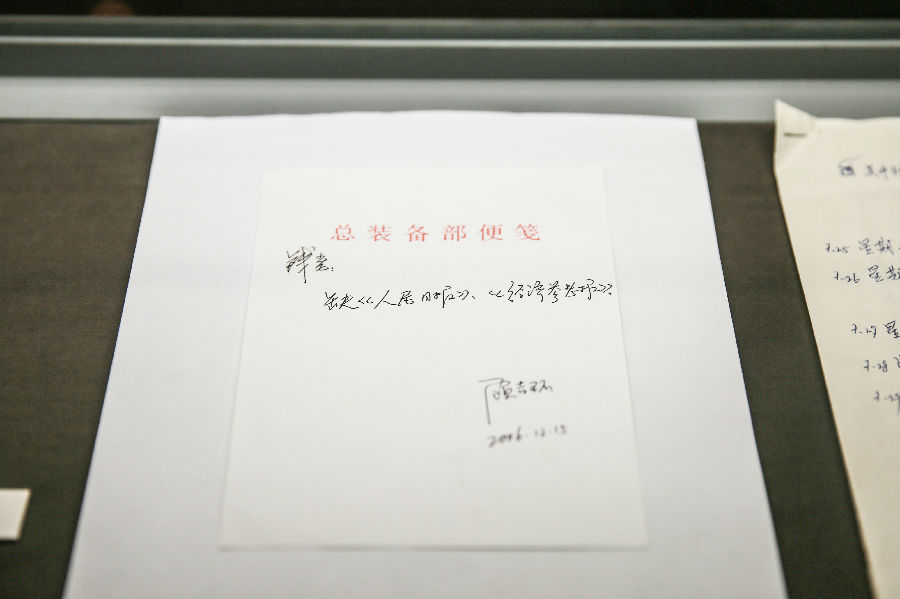 总装备部便笺
钱老:
《人民日报》、《经济参考报》
顾吉环
2006.12.15
7.25 星期
7.26 星期
7.27 星
7.28